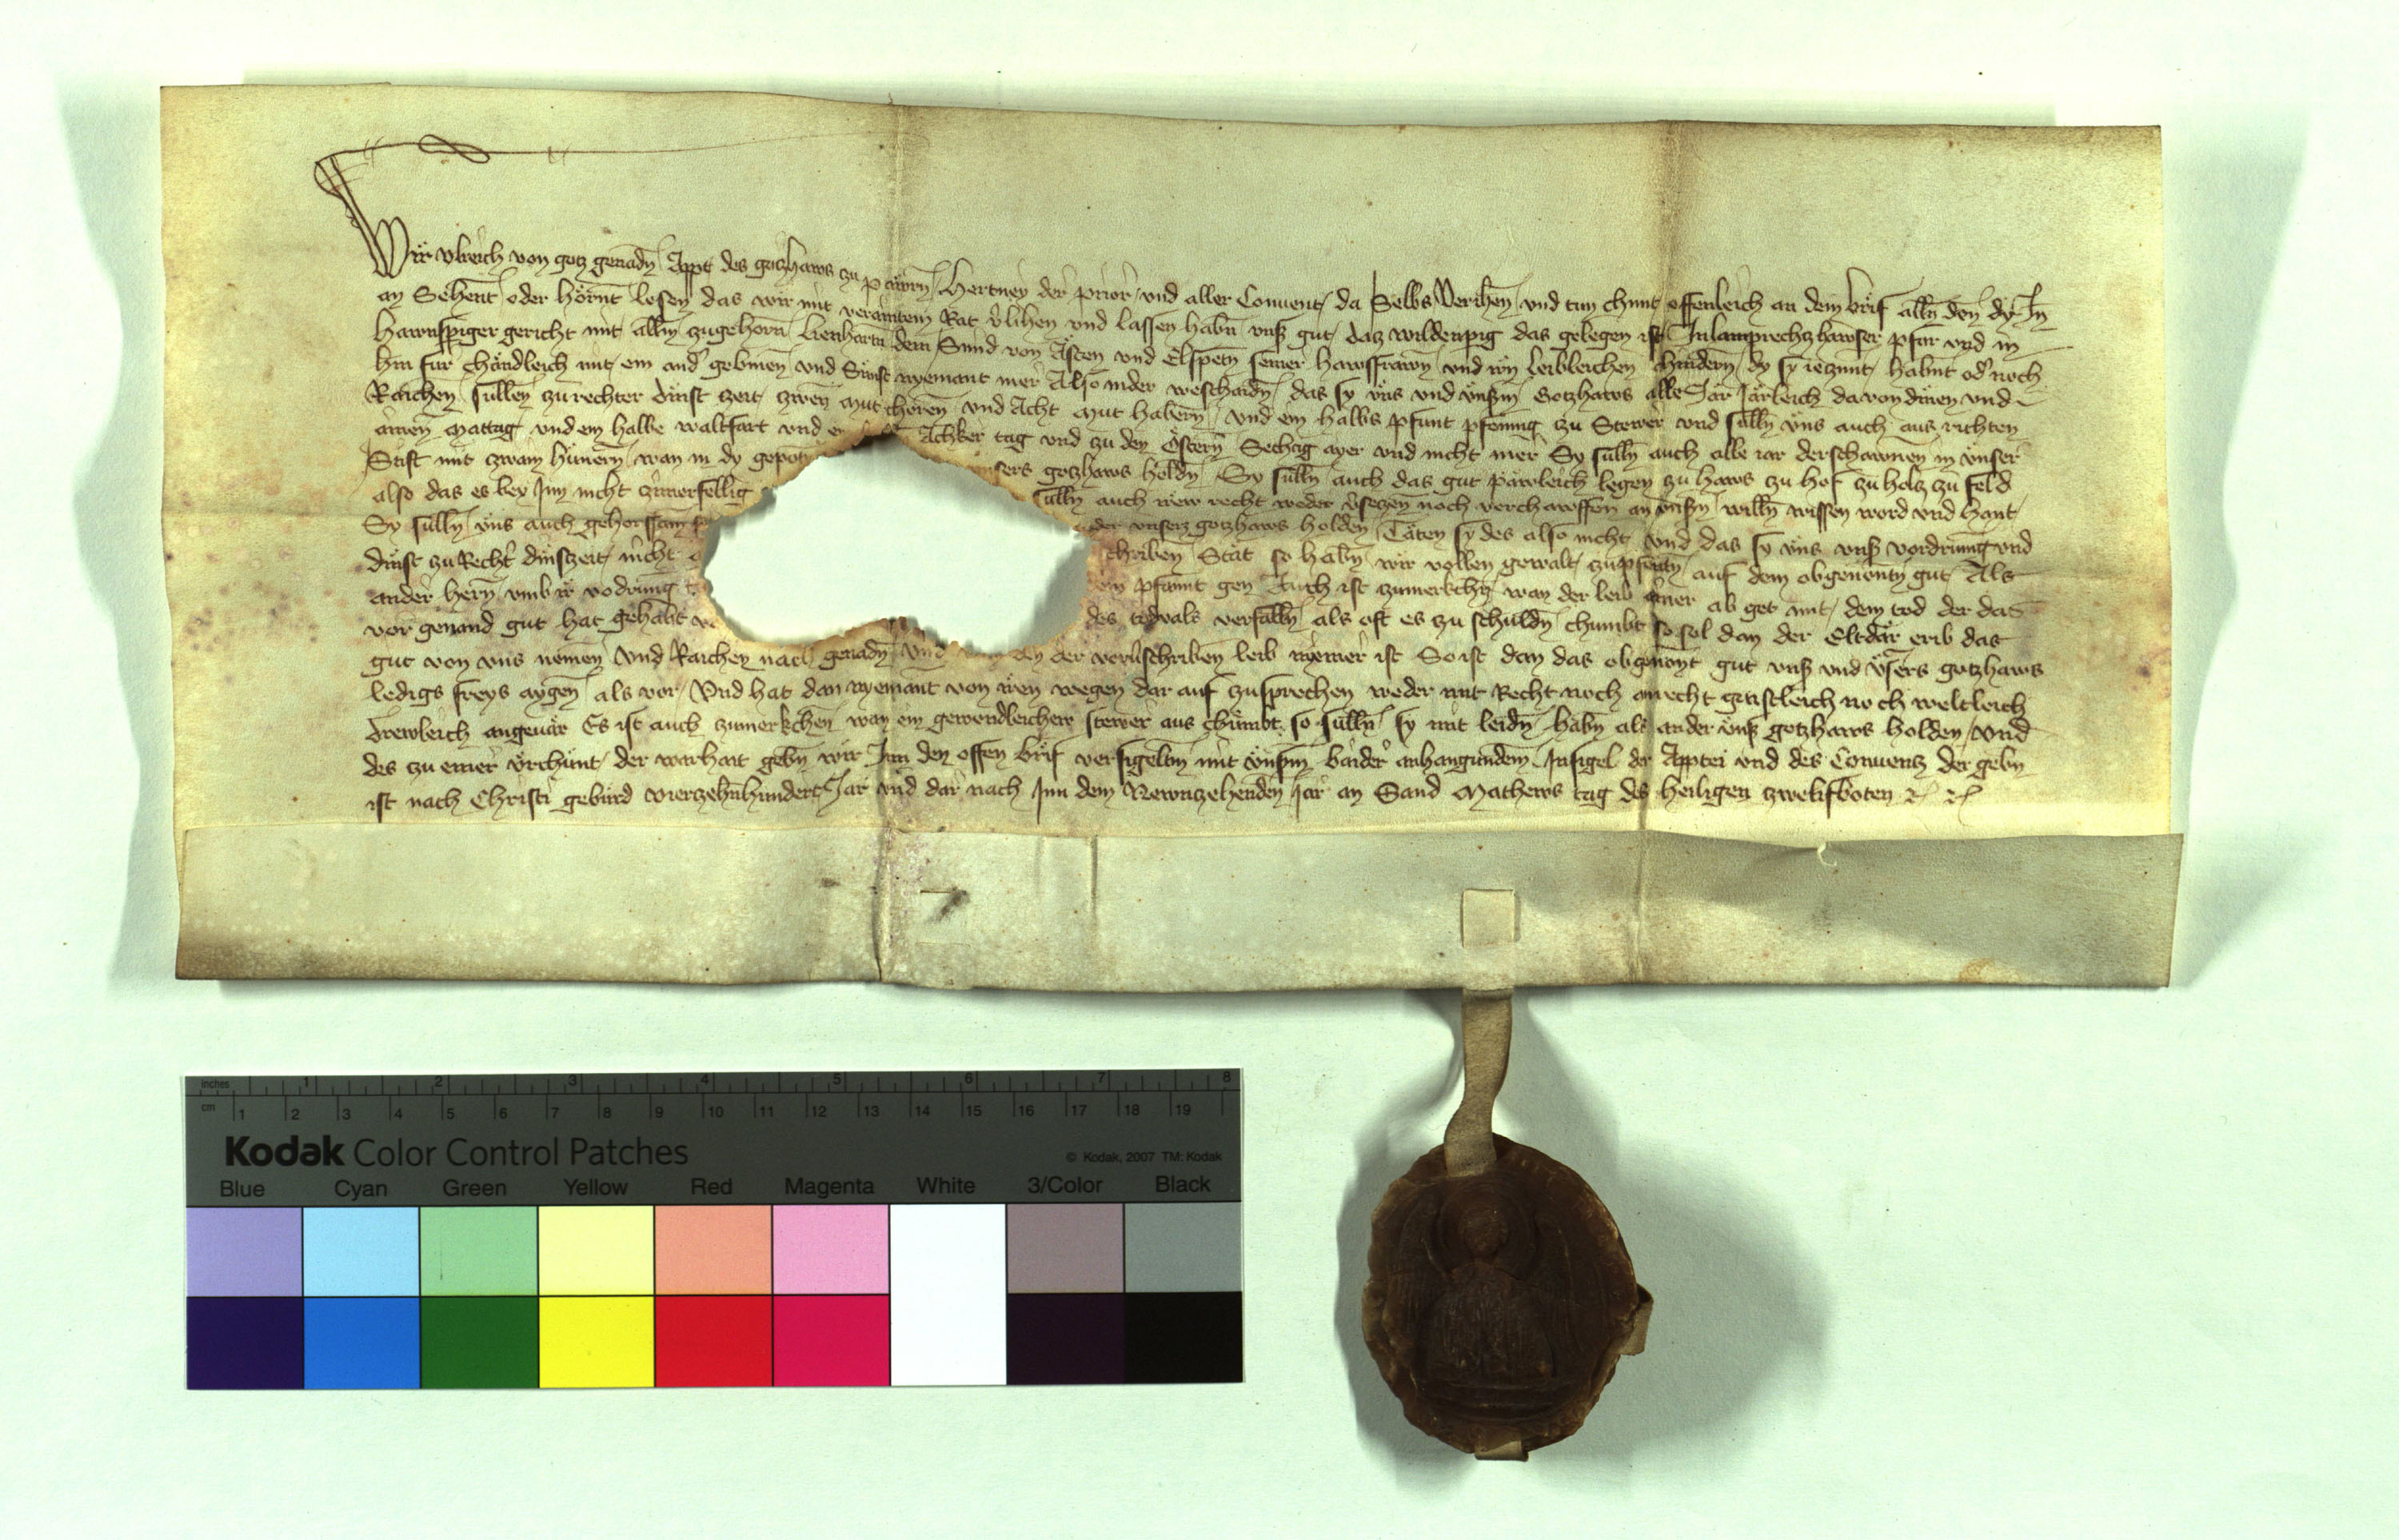 Wir Ulreich von gotz genadn Appt des gotzhaws zu pawrn Hertneyd der prior und aller Convent da Selbs Verihen und tun chunt offenleich an dem brif alln den dy In
an Sehent oder hörnt lesen das wir mit veraintem Rat v̓lihen und lassen habn unß gut daz wildenpig das gelegen ist In lamprechtzhawser pfar und in
hawnspiger gericht mit alln zugehorn Lienhartn dem Sund von Ästen und Elspeten seiner hawsfrawn und irn leibleichen chindern dy sy ieczunt habnt od noch
hin für chöndleich mit ein and gebinen und Sünst nyemant mer Also in der weschaidn das sy üns und ünßm Gotzhaws alle Jar Järleich davon dinen und
Raichen sullen zu rechter dinst zeit zwen Mut choren und Acht Mut habern und ein halbs pfunt pfennig zu Stewer und sulln üns auch aus richten
ainen Mattag und ein halbe waltfart und Achker tag und zu den Östern Sechtzig ayer und nicht mer Sy sulln auch alle iar derschawnen in ünser
Stift mit zwain hünern wan in dy gepoten unsers gotzhaws holdn Sy sulln auch das gut päwleich legen zu haws zu hof zu holtz zu feld
also das es bey Inn nicht zuverfellig sulln auch irew recht weder v̓setzen noch verchawffen an ünßm willn wissen word und hant
Sy sulln üns auch gehorssam oder unserz gotzhaws holden Täten sy des also nicht und das sy üns unß vordrung und
dinst zu Recht dinszeit nicht schriben Stat so habn wir vollen gewalt zu pfentn auf dem obgenentn gut Als
ander hern umb ir vodrung ein pfannt gen Auch ist zumerkchn wan der leib ainer ab get mit dem tod der das
vor genand gut hat gehabt des todvals verfalln als oft es zu schuldn chumbt so sol dan der Eltdär erib das
gut von uns nemen und Raichen nach genadn und der vorv̓schriben leib nyemer ist So ist dan das obgenont gut unß und üsers gotzhaws
ledigs freys aygen als vor Und hat dan nyemant von iren wegen dar auf zusprechen weder mit Recht noch an recht geistleich noch weltleich
trewleich angevär Es ist auch zumerkchen wan ein gewondleichew stewer aus chümbt so sulln sy mit leidn habn als ander ünß gotzhaws holden Und
des zu einer ürchünt der warhait gebn wir Inn den offen brif versigeltn mit ünßm baider anhangunden Insigel der Apptei und des Conventz der gebn
ist nach Christi gebürd vierzehnhundert Jar und dar nach Inn dem Newnzehenden Jar an Sand Mathews tag des heiligen zwelifboten
inches 1 2 3 4 5 6 7 8
cm 1 2 3 4 5 6 7 8 9 10 11 12 13 14 15 16 17 18 19
Kodak Color Control Patches
© Kodak, 2007 TM: Kodak
Blue Cyan Green Yellow Red Magenta White 3/Color Black